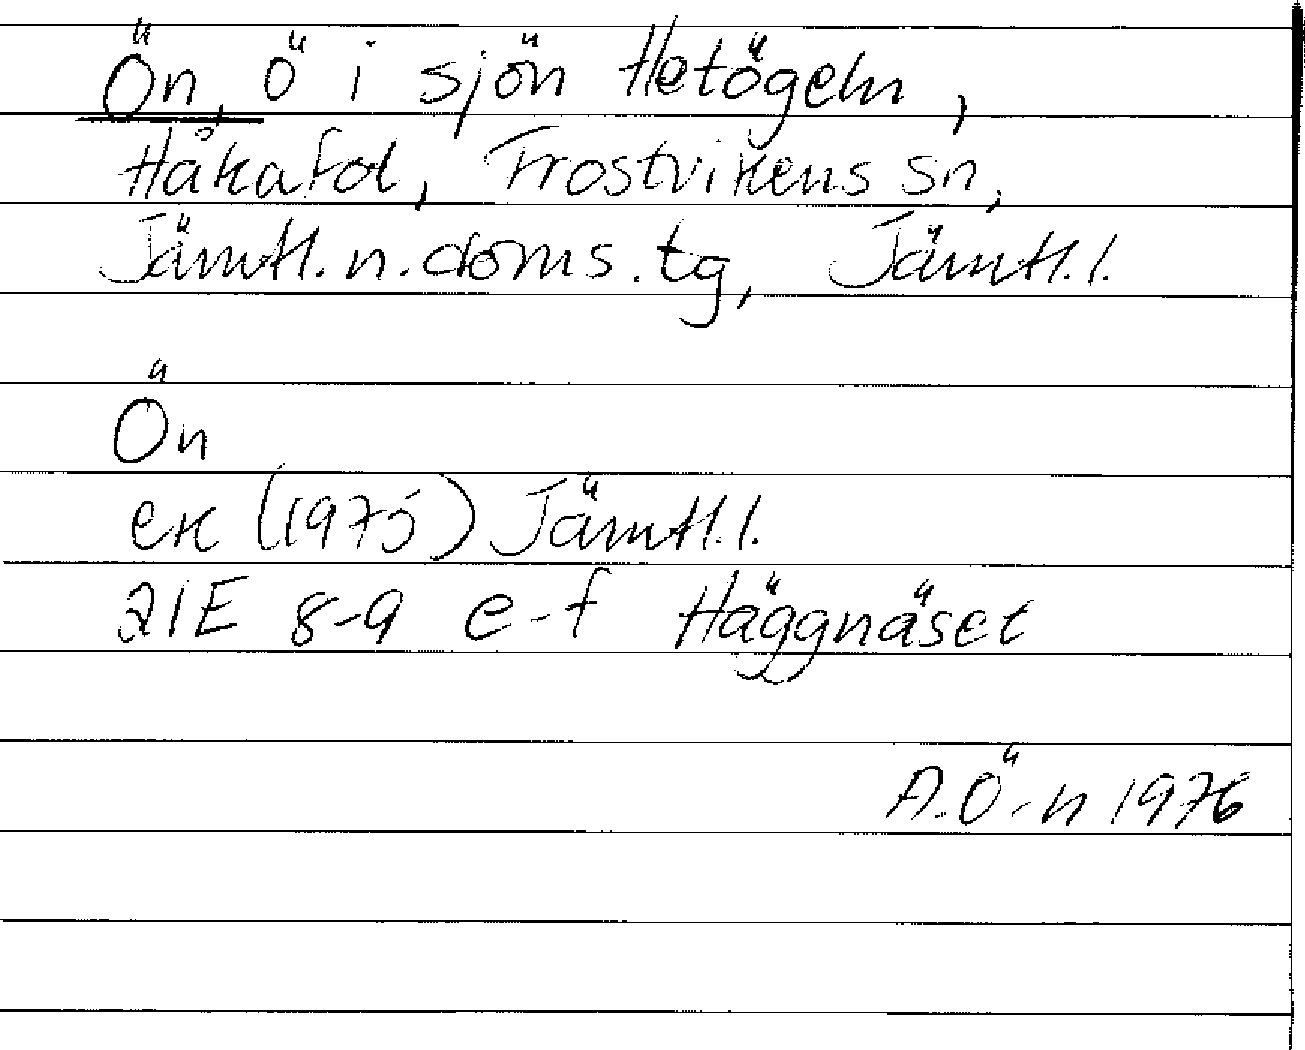 Ön, ö i sjön Hetögeln,
Håkafot, Frostvikens sn,
Jämtl. n. doms. tg, Jämtl. l.
Ön
ek (1975) Jämtl. l.
21E 8-9 e-f Häggnäset
A. Ö-n 1976